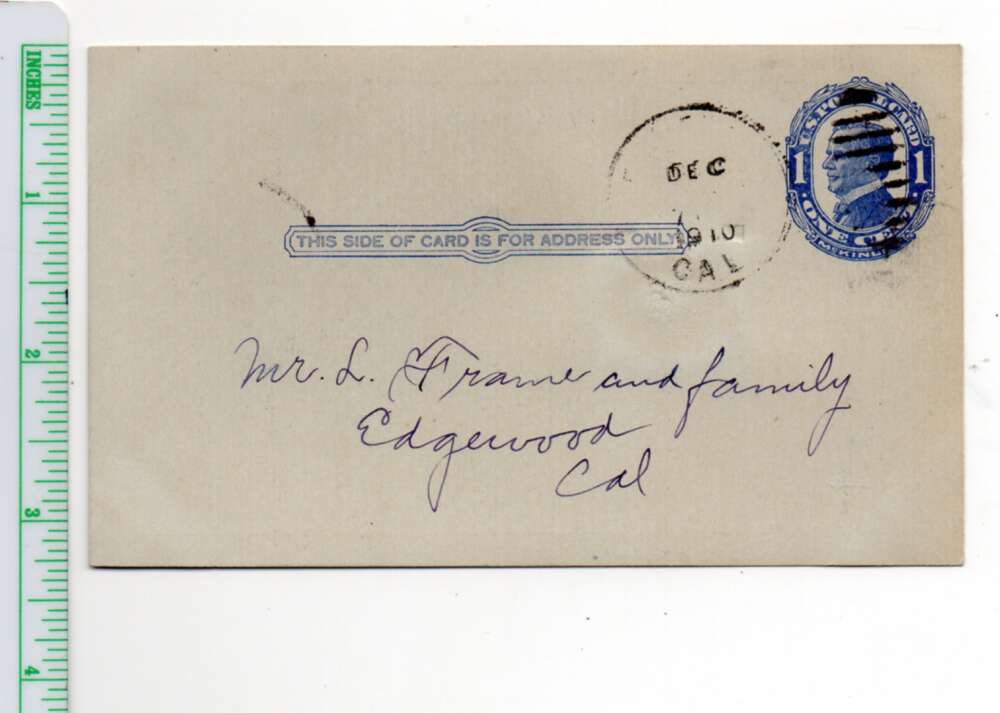 INCHES
1
2
3
4
U.S. POSTAL CARD
1 1
ONE CENT
McKINLEY
DEC
1910
CAL
THIS SIDE OF CARD IS FOR ADDRESS ONLY
Mr. L. Frame and family
Edgewood
Cal